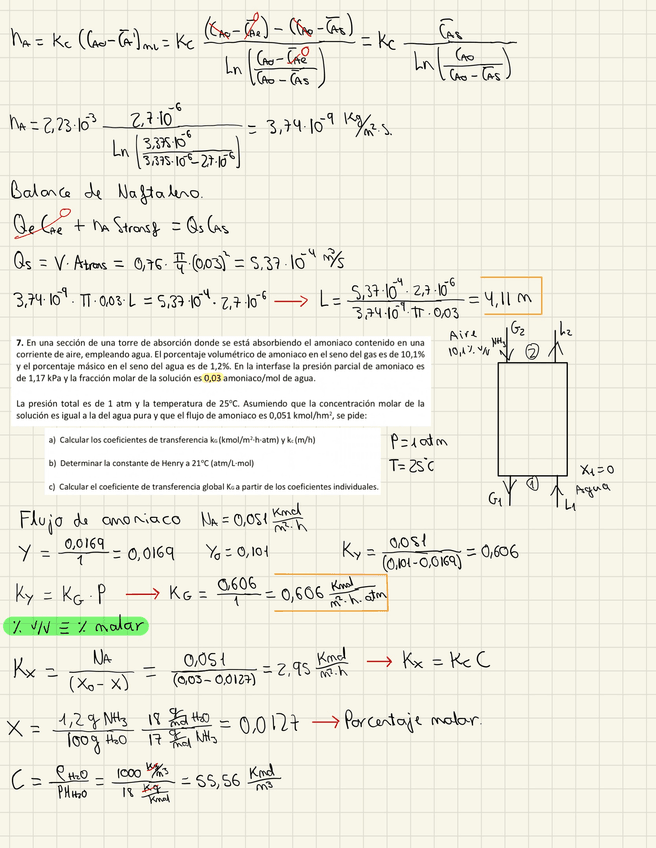 n_A = K_C (C_A0 - C̄_A')_ML = K_C ((C_A0 - C̄_Ae) - (C_A0 - C̄_AS)) / Ln[(C_A0 - C̄_Ae)/(C_A0 - C̄_AS)] = K_C C̄_AS / Ln[C_A0/(C_A0 - C̄_AS)]
n_A = 2,23·10^-3 2,7·10^-6 / Ln[3,375·10^-6/(3,375·10^-6 - 2,7·10^-6)] = 3,74·10^-9 Kg/m²·s.
Balance de Naftaleno.
Q_e C_Ae + n_A Stransf = Q_S C_AS
Q_S = V · A_trans = 0,76 · π/4 · (0,03)² = 5,37·10^-4 m³/s
3,74·10^-9 · π · 0,03 · L = 5,37·10^-4 · 2,7·10^-6 → L = (5,37·10^-4 · 2,7·10^-6)/(3,74·10^-9 · π · 0,03) = 4,11 m
7. En una sección de una torre de absorción donde se está absorbiendo el amoniaco contenido en una
corriente de aire, empleando agua. El porcentaje volumétrico de amoniaco en el seno del gas es de 10,1%
y el porcentaje másico en el seno del agua es de 1,2%. En la interfase la presión parcial de amoniaco es
de 1,17 kPa y la fracción molar de la solución es 0,03 amoniaco/mol de agua.
La presión total es de 1 atm y la temperatura de 25°C. Asumiendo que la concentración molar de la
solución es igual a la del agua pura y que el flujo de amoniaco es 0,051 kmol/hm², se pide:
a) Calcular los coeficientes de transferencia kG (kmol/m²·h·atm) y kc (m/h)
b) Determinar la constante de Henry a 21°C (atm/L·mol)
c) Calcular el coeficiente de transferencia global KG a partir de los coeficientes individuales.
Aire
10,1% v/v NH3
G2
L2
②
P = 1 atm
T = 25°C
①
X1 = 0
Agua
G1
L1
Flujo de amoniaco N_A = 0,051 Kmol/m²·h
Y = 0,0169/1 = 0,0169 Y_0 = 0,101 K_Y = 0,051/(0,101 - 0,0169) = 0,606
K_Y = K_G · P → K_G = 0,606/1 = 0,606 Kmol/m²·h·atm
% v/v ≡ % molar
K_X = N_A/(X_0 - X) = 0,051/(0,03 - 0,0127) = 2,95 Kmol/m²·h → K_X = K_C C
X = 1,2 g NH3/100 g H2O 18 g/mol H2O/17 g/mol NH3 = 0,0127 → Porcentaje molar.
C = ρ_H2O/PM_H2O = 1000 Kg/m³/18 Kg/Kmol = 55,56 Kmol/m³